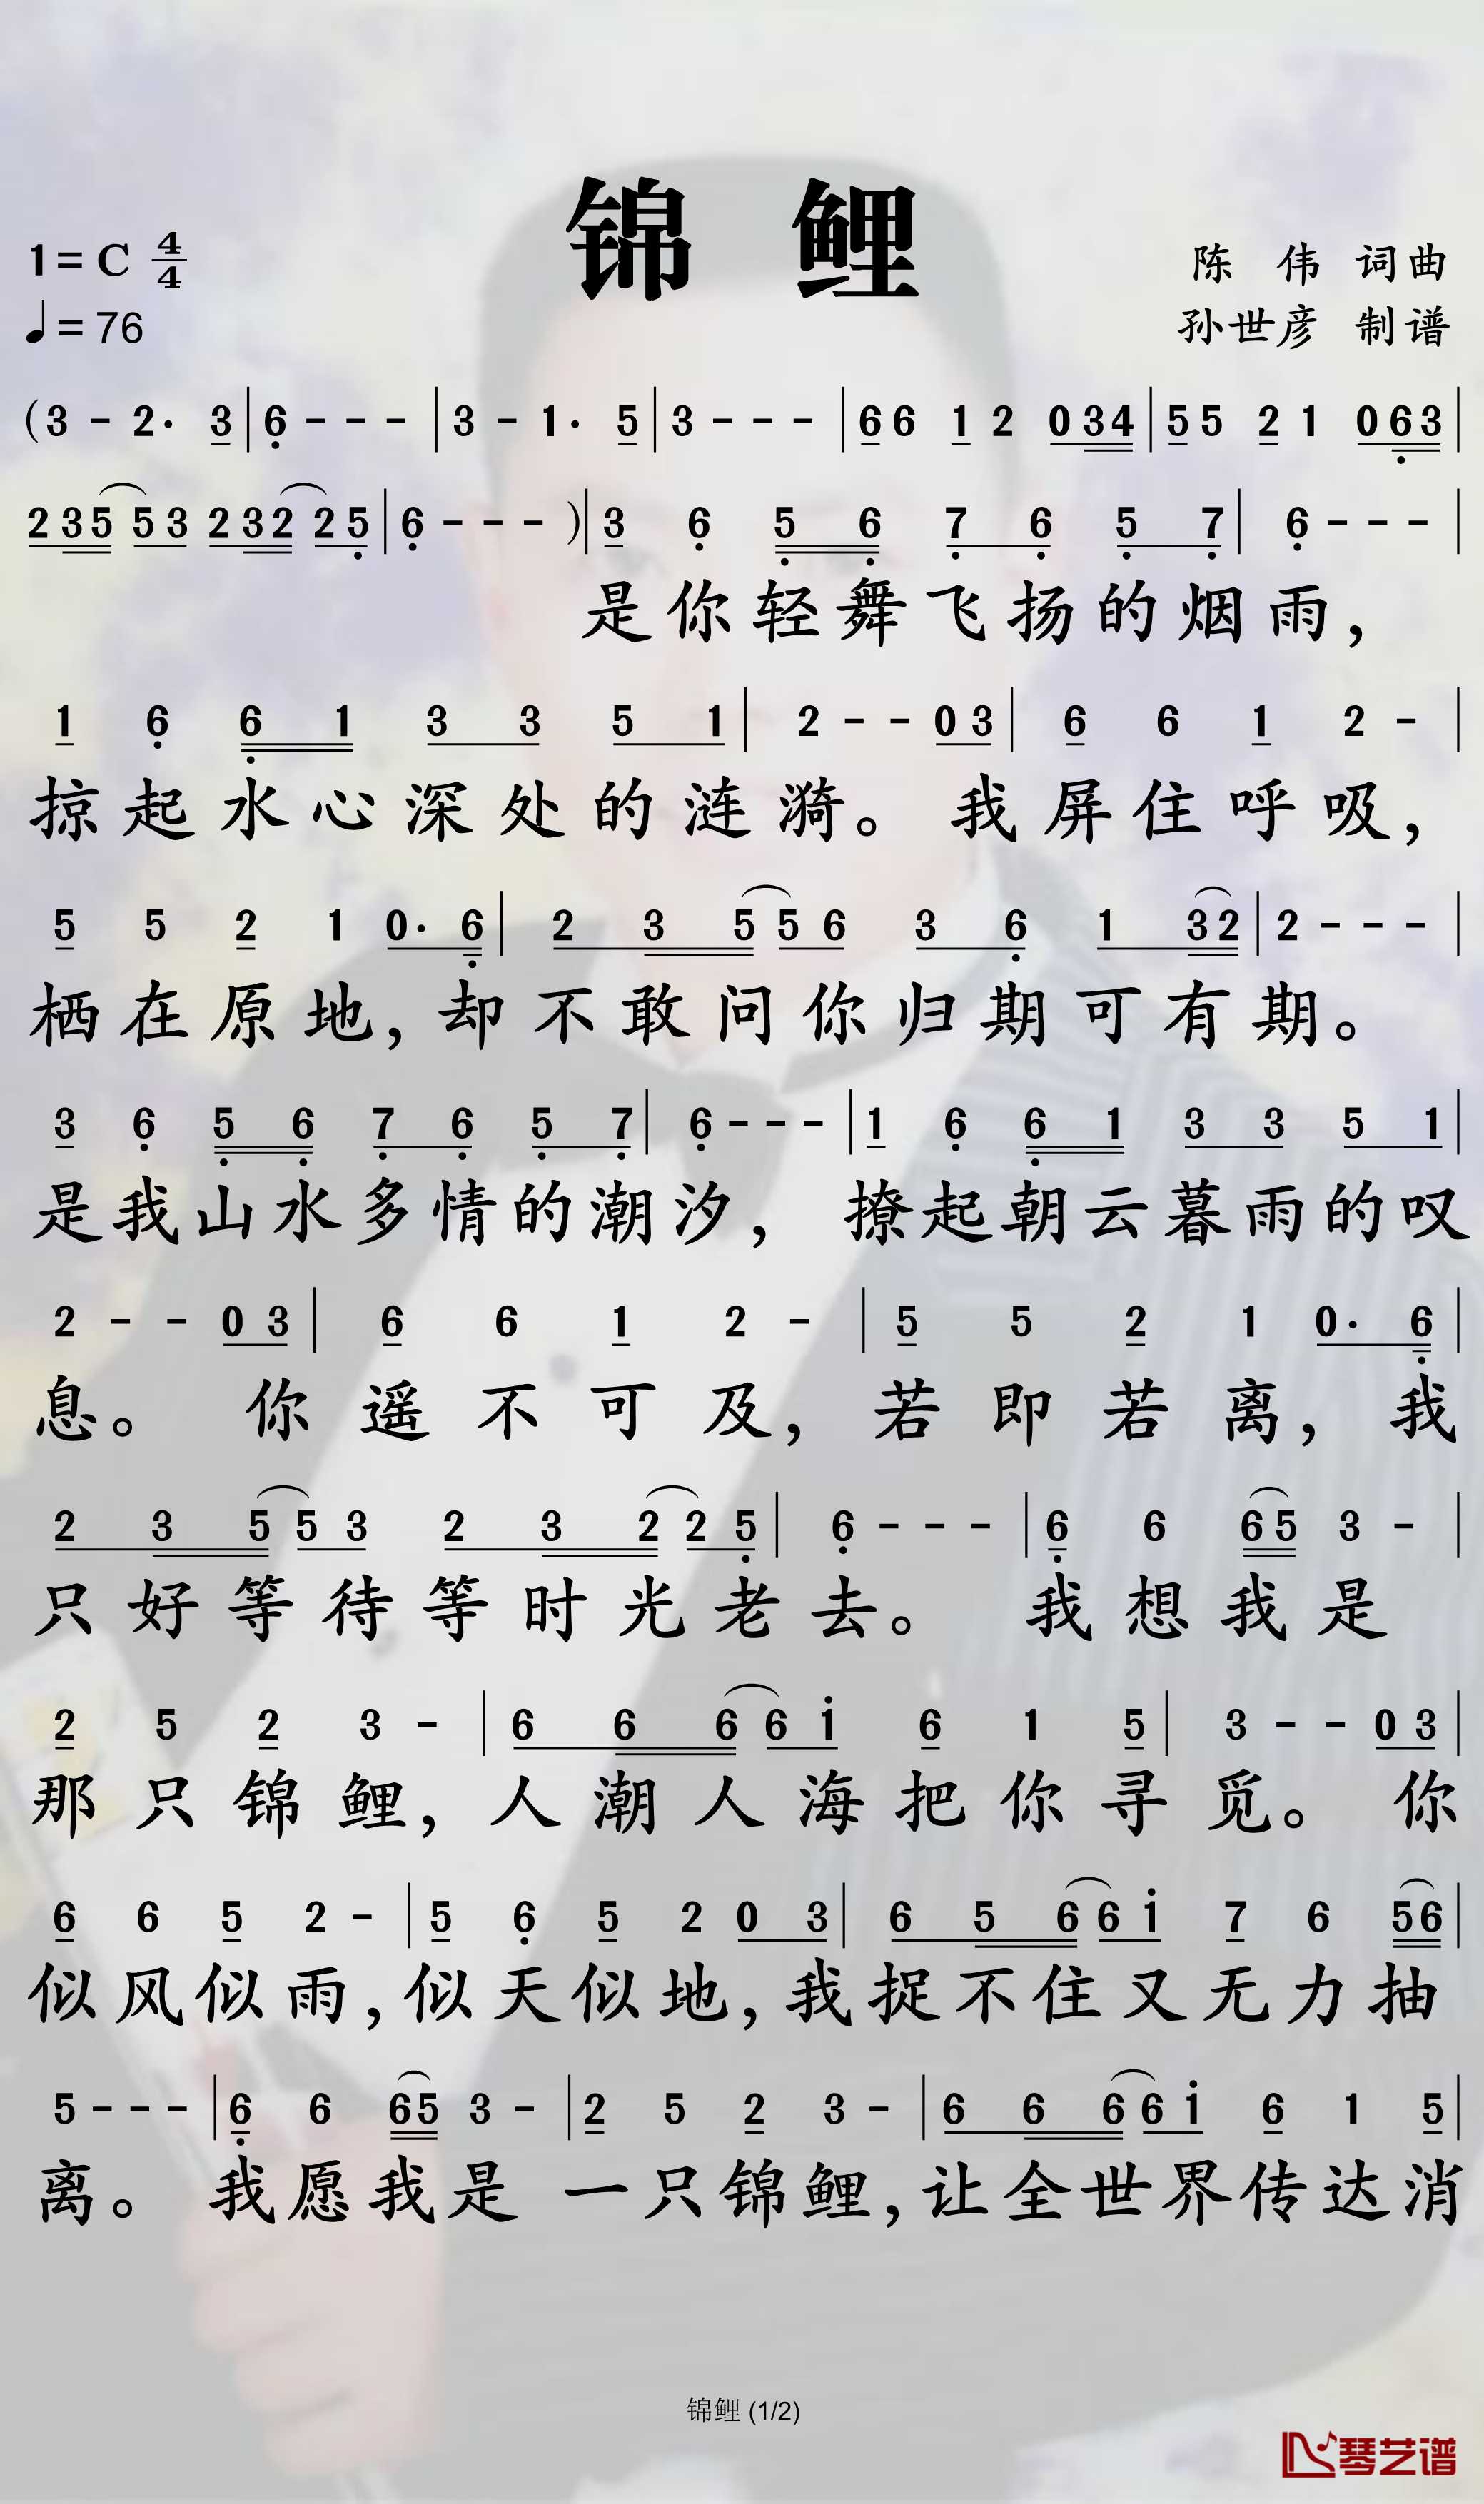 锦 鲤
1=C 4/4
♩=76
陈 伟 词曲
孙世彦 制谱
(3 - 2· 3 | 6 - - - | 3 - 1· 5 | 3 - - - | 6 6 1 2 0 3 4 | 5 5 2 1 0 6 3 |
2 3 5 5 3 2 3 2 2 5 | 6 - - - ) | 3 6 5 6 7 6 5 7 | 6 - - - |
是你轻舞飞扬的烟雨,
1 6 6 1 3 3 5 1 | 2 - - 0 3 | 6 6 1 2 - |
掠起水心深处的涟漪。 我屏住呼吸,
5 5 2 1 0· 6 | 2 3 5 5 6 3 6 1 3 2 | 2 - - - |
栖在原地,却不敢问你归期可有期。
3 6 5 6 7 6 5 7 | 6 - - - | 1 6 6 1 3 3 5 1 |
是我山水多情的潮汐, 撩起朝云暮雨的叹
2 - - 0 3 | 6 6 1 2 - | 5 5 2 1 0· 6 |
息。 你遥不可及,若即若离,我
2 3 5 5 3 2 3 2 2 5 | 6 - - - | 6 6 6 5 3 - |
只好等待等时光老去。 我想我是
2 5 2 3 - | 6 6 6 6 i 6 1 5 | 3 - - 0 3 |
那只锦鲤,人潮人海把你寻觅。 你
6 6 5 2 - | 5 6 5 2 0 3 | 6 5 6 6 i 7 6 5 6 |
似风似雨,似天似地,我捉不住又无力抽
5 - - - | 6 6 6 5 3 - | 2 5 2 3 - | 6 6 6 6 i 6 1 5 |
离。 我愿我是 一只锦鲤,让全世界传达消
锦鲤 (1/2)
琴艺谱